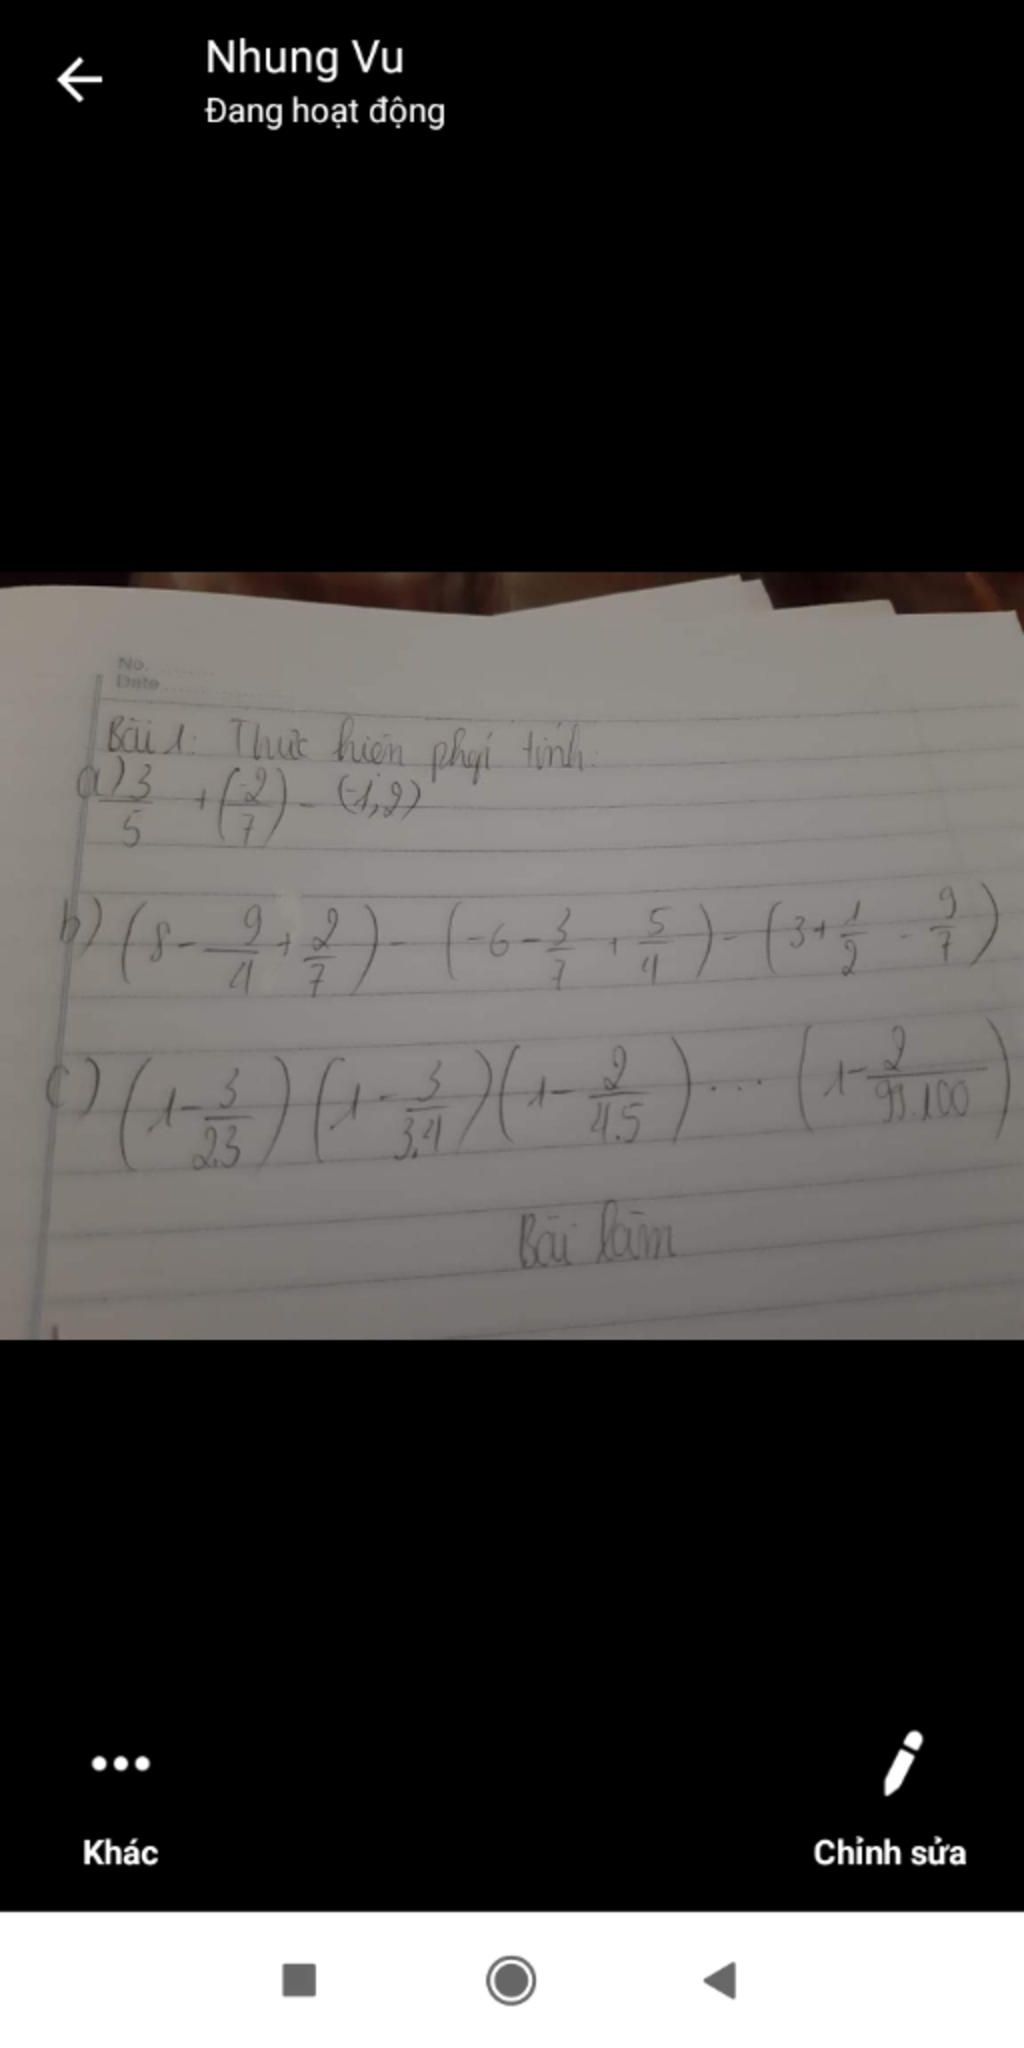 Nhung Vu
Đang hoạt động
No.
Date
Bài 1: Thực hiện phép tính:
a) 3/5 + (-2/7) - (-1,2)
b) (8 - 9/4 + 2/7) - (-6 - 3/7 + 5/4) - (3 + 1/2 - 9/7)
c) (1 - 3/2.3) (1 - 3/3.4) (1 - 2/4.5) ... (1 - 2/99.100)
Bài làm
Khác
Chỉnh sửa